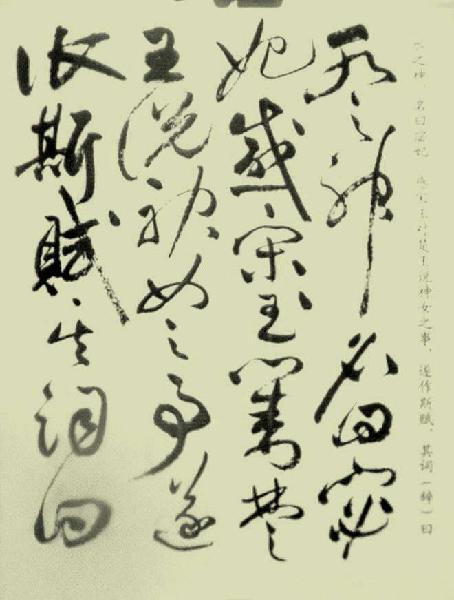 水之神，名曰宓妃，感宋玉对楚王说神女之事，遂作斯赋，其词（辞）曰
水之神名曰宓
妃感宋玉對楚
王說神女之事遂
作斯賦其詞曰